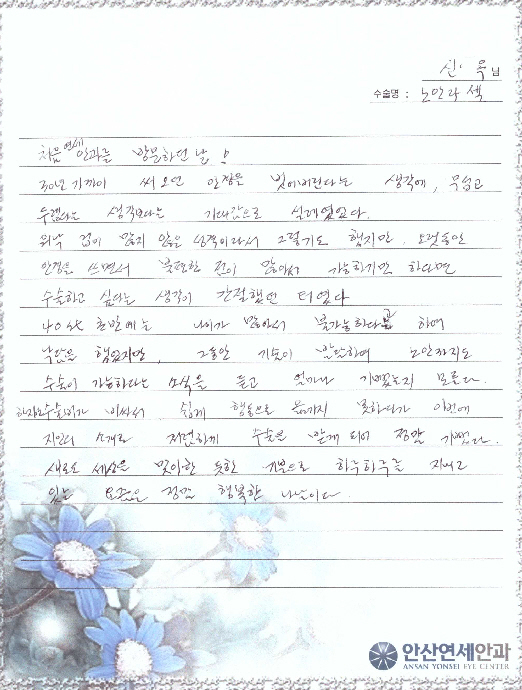 신· 옥 님
수술명 : 노안라섹
처음 연세안과를 방문하던 날!
30년 가까이 써 오던 안경을 벗어버린다는 생각에, 무섭고
두렵다는 생각보다는 기대감으로 설레었었다.
워낙 겁이 많지 않은 성격이라서 그렇기도 했지만, 오랫동안
안경을 쓰면서 불편한 점이 많아서 가능하기만 하다면
수술하고 싶다는 생각이 간절했던 터였다
40세 초반에는 나이가 많아서 불가능하다고 하여
낙담을 했었지만, 그동안 기술이 발달하여 노안까지도
수술이 가능하다는 소식을 듣고 얼마나 기뻤는지 모른다.
하지만 수술비가 비싸서 쉽게 행동으로 옮기지 못하다가 이번에
지인의 소개로 저렴하게 수술을 받게 되어 정말 기뻤다.
새로운 세상을 맞이한 듯한 기분으로 하루하루를 지내고
있는 요즘은 정말 행복한 나날이다.
안산연세안과
ANSAN YONSEI EYE CENTER